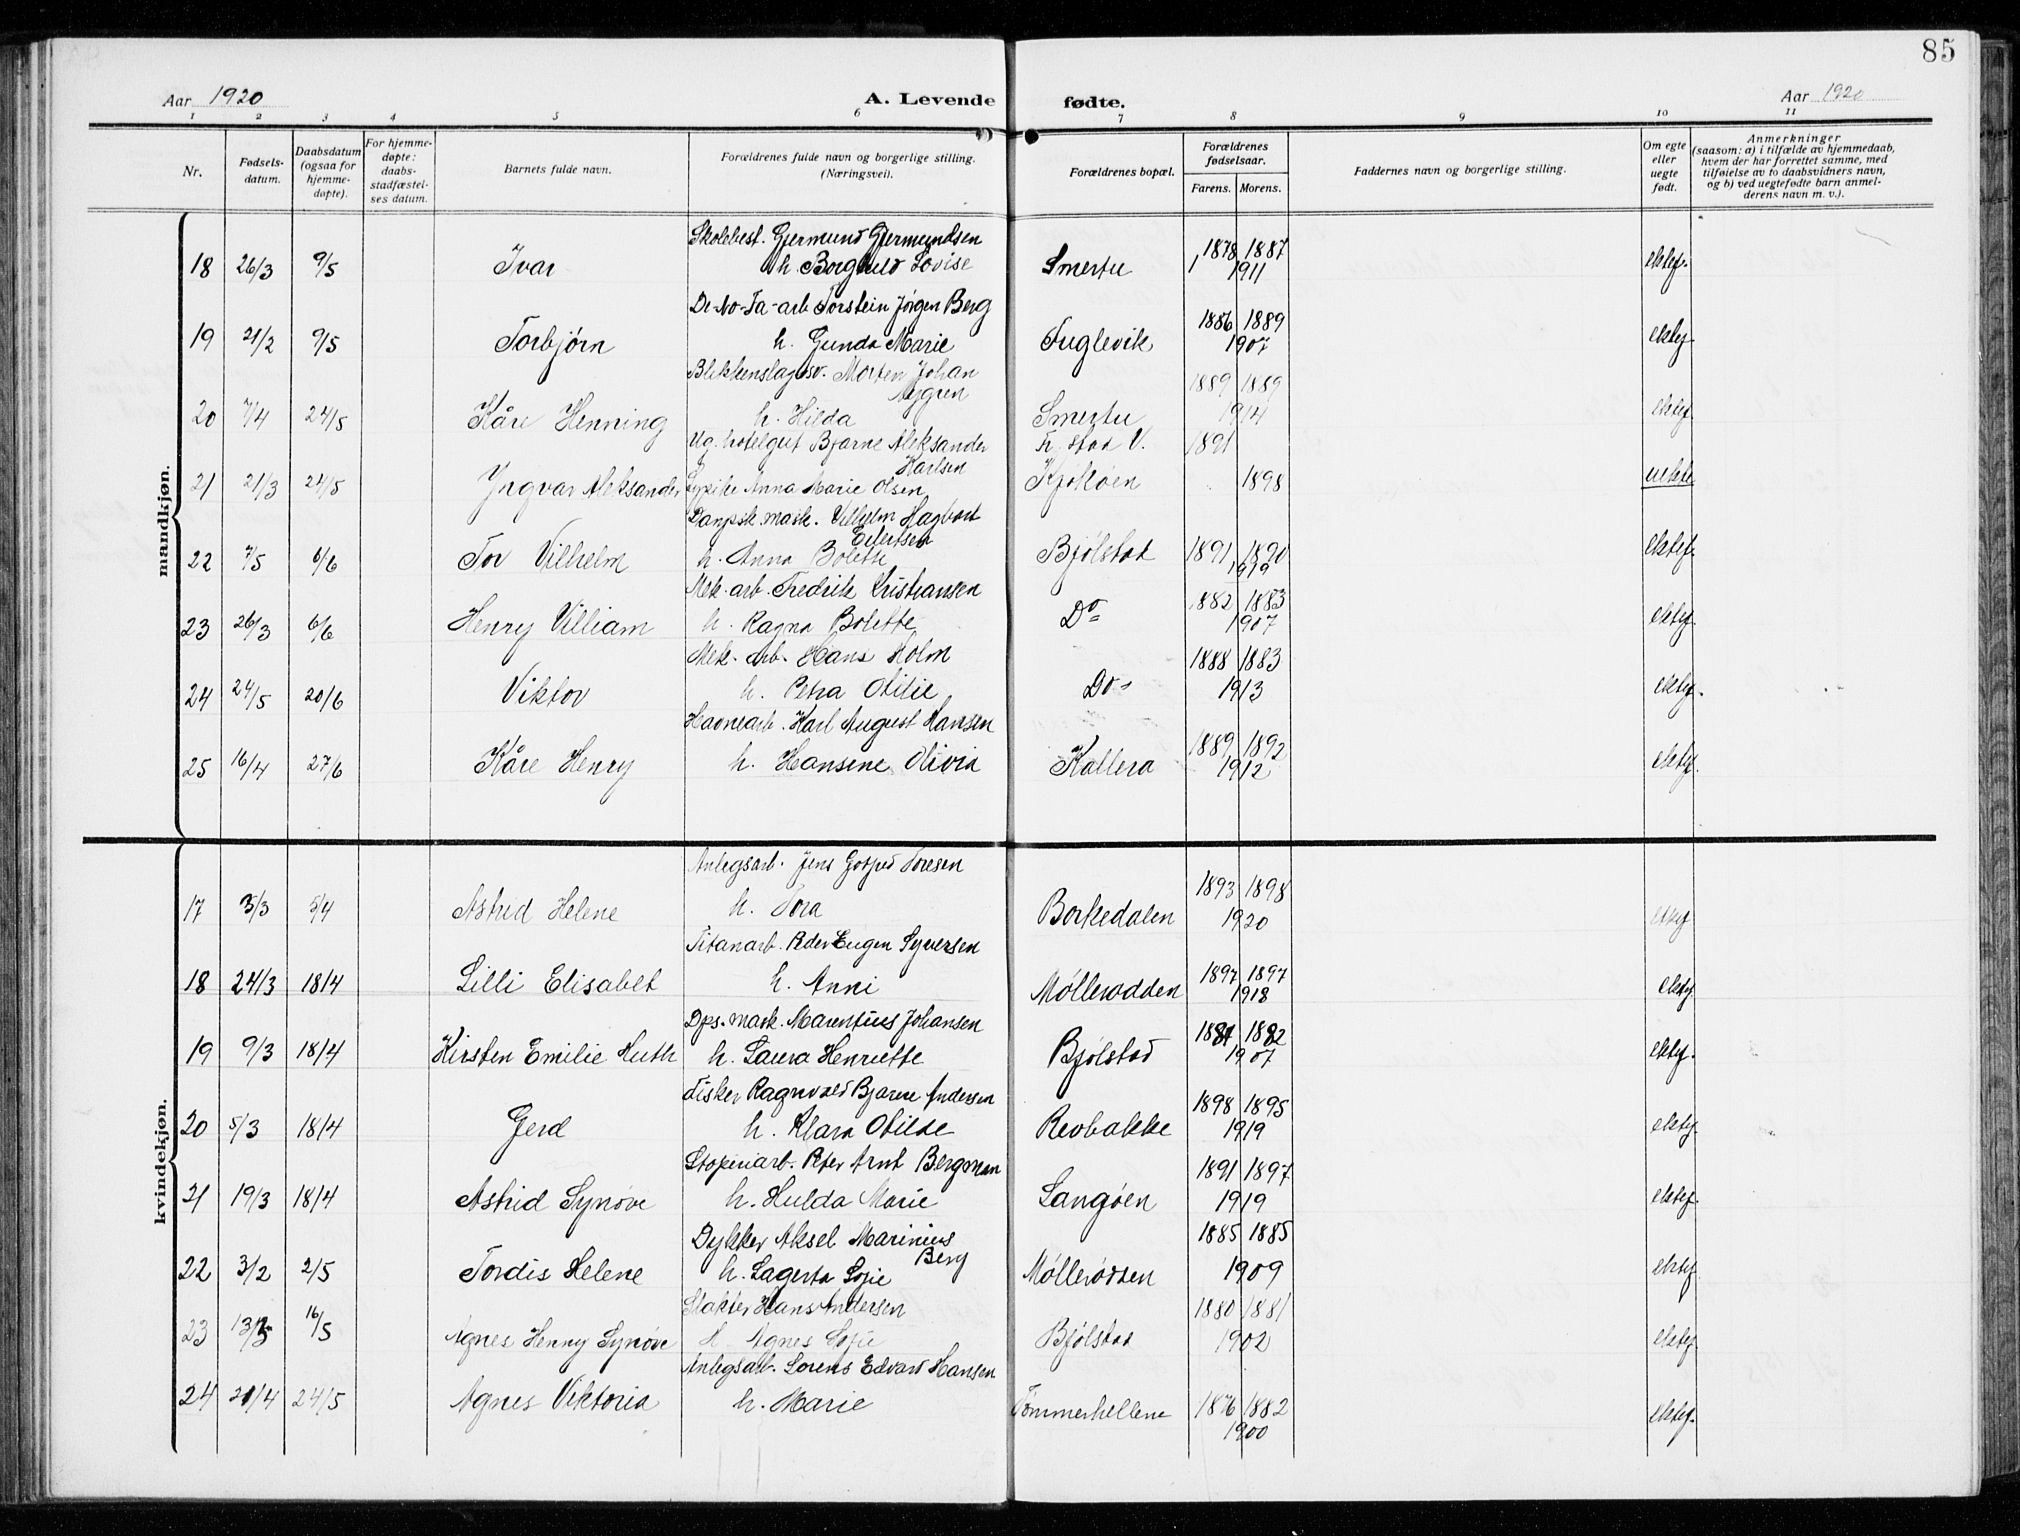 85
Aar 1920
A. Levende fødte.
Aar 1920
1 2 3 4 5 6 7 8 9 10 11
Nr.
Fødsels-
datum.
Daabsdatum
(ogsaa for
hjemme-
døpte).
For hjemme-
døpte:
daabs-
stadfæstel-
ses datum.
Barnets fulde navn.
Forældrenes fulde navn og borgerlige stilling.
(Næringsvei).
Forældrenes bopæl.
Forældrenes
fødselsaar.
Farens. Morens.
Faddernes navn og borgerlige stilling.
Om egte
eller
uegte
født.
Anmerkninger
(saasom: a) i tilfælde av hjemmedaab,
hvem der har forrettet samme, med
tilføielse av to daabsvidners navn,
og b) ved uegtefødte barn anmel-
derens navn m. v.).
mandkjøn.
Skolebest. Gjermund Gjermundsen 1878 1887
18 26/3 9/5 Ivar h. Borghild Lovise Smertu 1911 ektef.
De-No-Fa-arb Torstein Jørgen Berg 1886 1889
19 21/2 9/5 Torbjørn h. Gunda Marie Fuglevik 1907 ektef
Blikkenslagersv. Morten Johan 1889 1889
Nygren
20 7/4 24/5 Kåre Henning h. Hilda Smertu 1914 ektef
Ug. hotelgut Bjarne Aleksander Fr.stad V. 1891
Karlsen
21 21/3 24/5 Yngvar Aleksander Anna Marie Olsen Kjøkøen 1898 uekte
Dampsk. mask. Vilhelm Hagbart
Eilertsen
22 7/5 6/6 Tor Vilhelm h. Anna Bolette Bjølstad 1891 1890 ektef.
1919
Mek. arb. Fredrik Kristiansen 1882 1883
23 26/3 6/6 Henry Villiam h. Ragna Bolette Do 1907 ektef.
Mek. Arb. Hans Holm 1888 1883
24 24/5 20/6 Viktor h. Petra Otilie Do 1913 ektef.
Havnearb. Karl August Hansen 1889 1892
25 16/4 27/6 Kåre Henry h. Hansine Olivia Kallera 1912 ektef.
kvindekjøn.
Anlegsarb. Jens Gotfred Toresen 1893 1898
17 3/3 5/4 Astrid Helene h. Tora Borkedalen 1920 ektef
Titanarb. Peder Eugen Syversen 1897 1897
18 24/3 18/4 Lilli Elisabet h. Anni Møllerodden 1918 ektef.
Dps. mask. Marentius Johansen 1881 1882
19 9/3 18/4 Kirsten Emilie Huth h. Laura Henriette Bjølstad 1907 ektef.
Fisker Ragnvald Bjarne Andersen 1898 1895
20 5/3 18/4 Gerd h. Klara Otilde Revbakke 1919 ektef.
Støperiarb. Peter Arnt Bergman 1891 1897
21 19/3 18/4 Astrid Synøve h. Hulda Marie Langøen 1919 ektef.
Dykker Aksel Marinius 1885 1885
Berg
22 3/2 2/5 Tordis Helene h. Lagerta Sofie Møllerodden 1909 ektef.
Slakter Hans Andersen 1880 1881
23 16/5 Agnes Henny Synøve h. Agnes Sofie Bjølstad 1902 ektef.
Anlegsarb. Lorens Edvard Hansen
24 21/4 24/5 Agnes Viktoria h. Marie Tømmerhellene 1876 1882 ektef.
1900